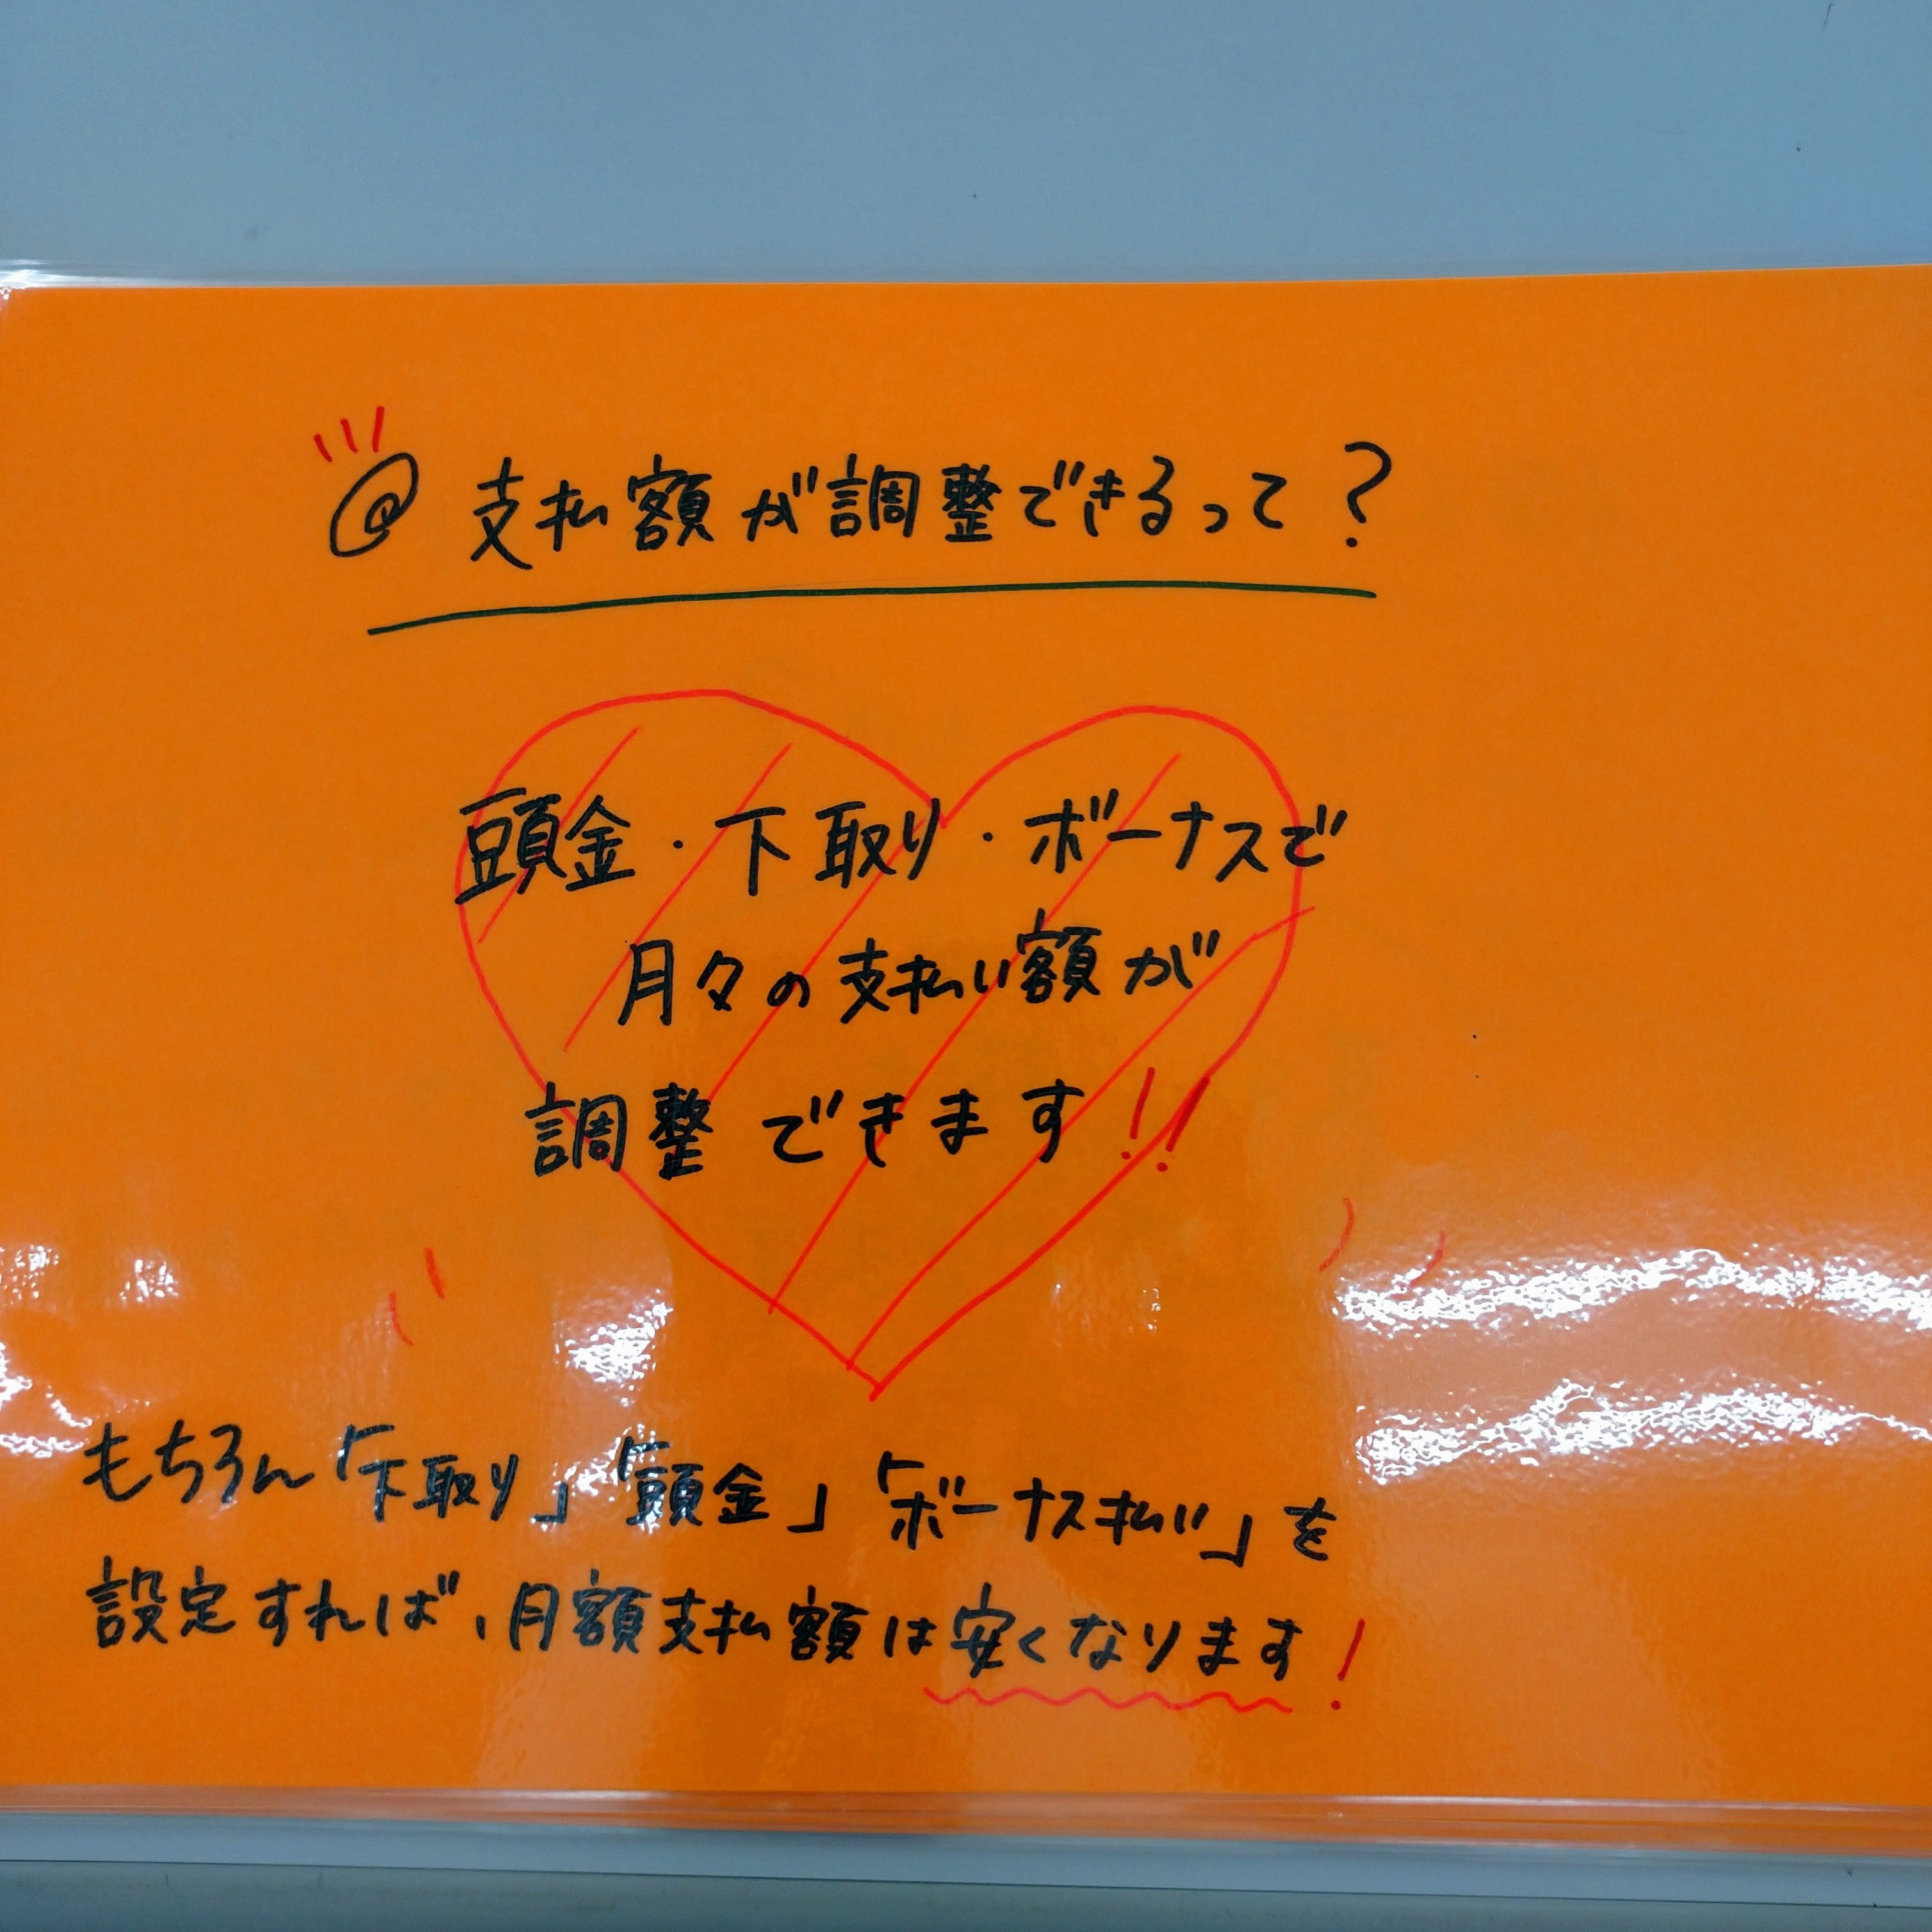 @ 支払額が調整できるって?
頭金・下取り・ボーナスで
月々の支払い額が
調整できます!!
もちろん「下取り」「頭金」「ボーナス払い」を
設定すれば、月額支払額は安くなります!